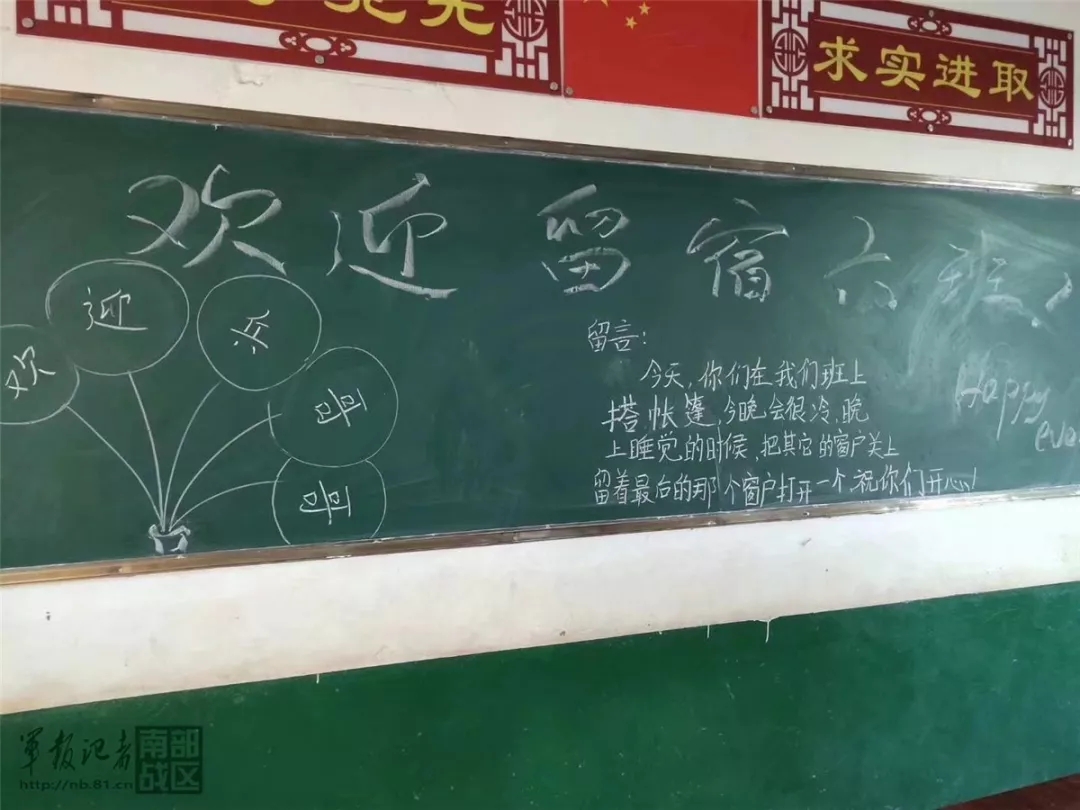 求实进取
欢迎留宿六班
欢
迎
兵
哥
哥
留言:
今天,你们在我们班上
搭帐篷,今晚会很冷,晚
上睡觉的时候,把其它的窗户关上
留着最后的那个窗户打开一个,祝你们开心!
Happy
军报记者
南部
战区
http://nb.81.cn